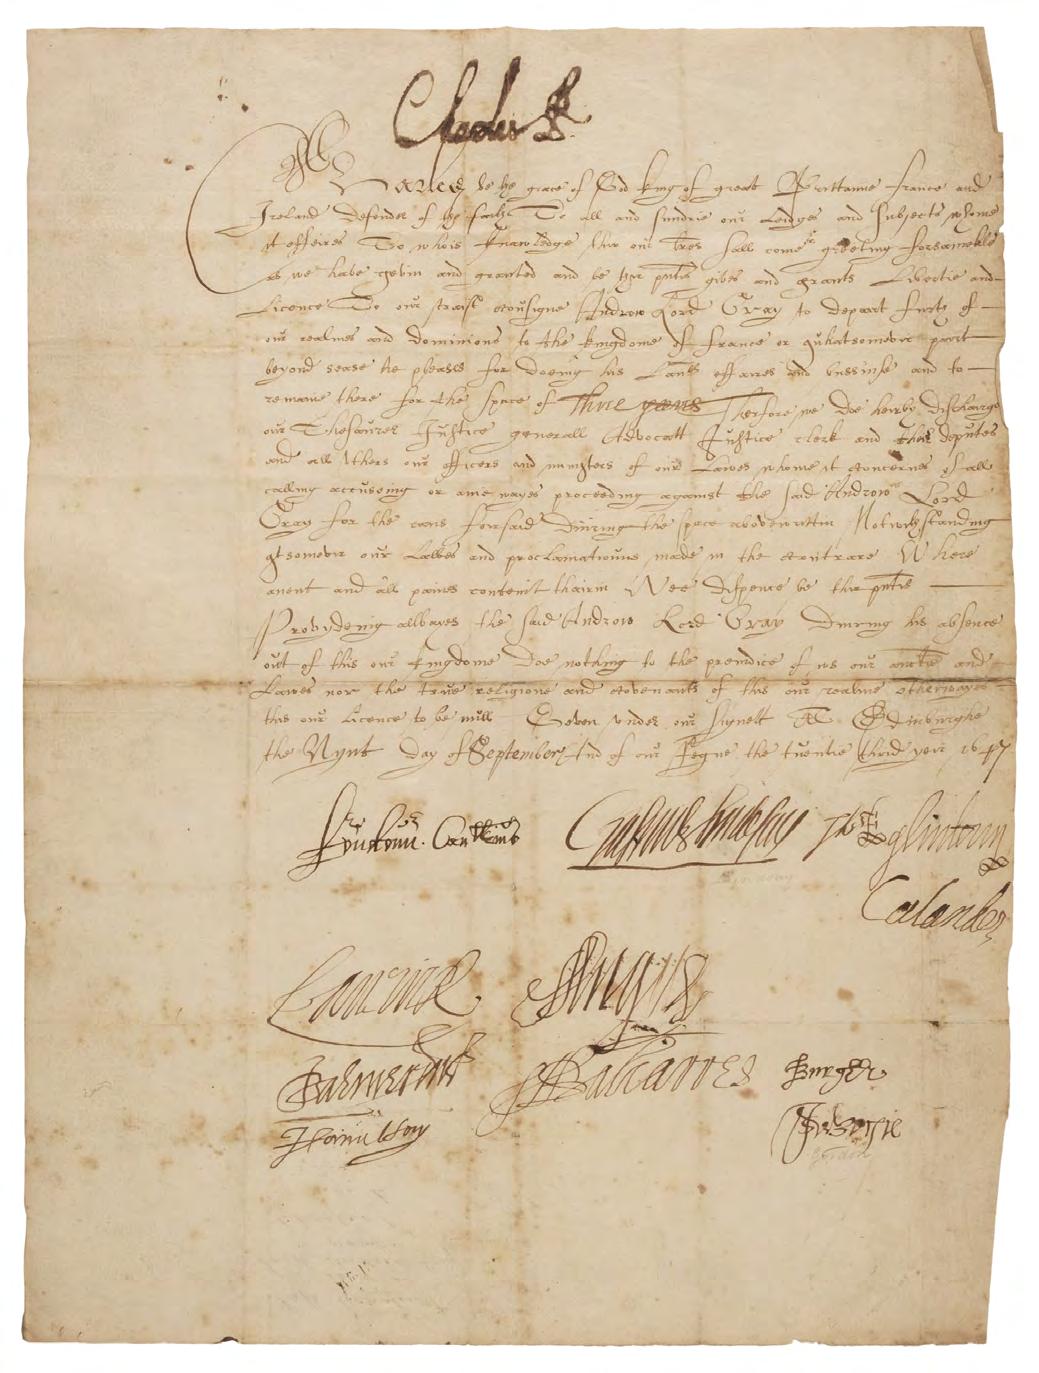 Charles R
Charles be the grace of God king of great Brittanne france and
Ireland defender of the faith To all and sundrie our Leidges and subjects whome
it effeires To whois knawledge thir our lres sall come greiting forsameikle
as we have gevin and granted and be thir pntis gives and grants Libertie and
Licence To our traist cousigne Androw Lord Gray to depart furth of
our realmes and dominions to the kingdome of france or quhatsomevir part
beyond sease he pleases for doeing his Lau effaires and bussines and to
remaine there for the space of thrie yeares Therfore we doe heirby discharge
our Thesaurer Justice generall Advocatt Justice clerk and their deputes
and all others our officers and ministers of our Lawes whome it concernes of all
calling accuseing or anie wayes proceeding against the said Androw Lord
Gray for the caus forsaid Dureing the space abovewrittin Notwithstanding
qtsomevir our Lawes and proclamatiouns made in the contrare Where
anent and all paines contenit thairin Wee dispence be thir pntis
Provydeing allwayes the said Androw Lord Gray Dureing his absence
out of this our kingdome doe nothing to the preiudice of us our and
Lawes nor the true religione and covenants of this our realme otherwayes
this our licence to be null Geven under our signett At Edinburghe
the Nynt day of September And of our Regne the tuentie thrid yeir 1647
Crafurd Lindsay
Eglintoun
Lindsay
Calander
Lanerick
Angus
Balmerino
Balcarres
Burgly
JHamilton